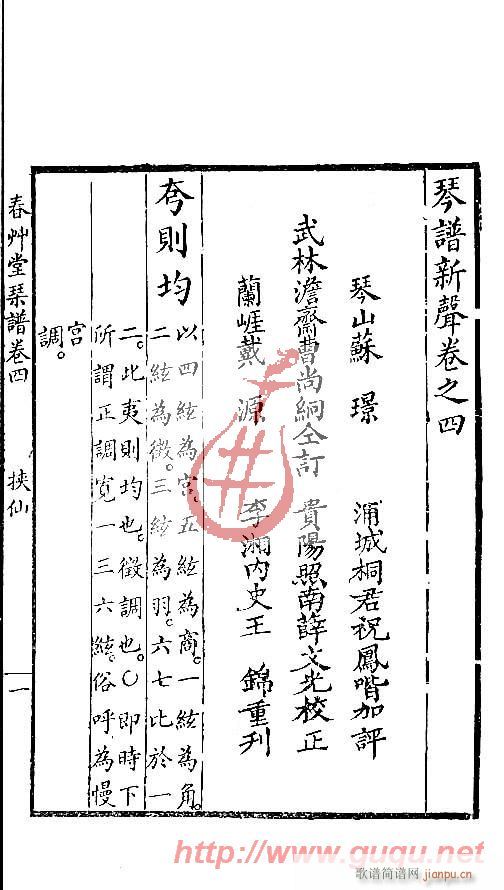 琴譜新聲卷之四
琴山蘇　璟　浦城桐君祝鳳喈加評
武林澹齋曹尚絅仝訂　貴陽照南薛文光校正
蘭崖戴　源　李湘內史王　錦重刊
夷則均
以四絃為宮。五絃為商。一絃為角。
二絃為徵。三絃為羽。六七比於一
二。此夷則均也。徵調也。〇即時下
所謂正調寬一三六絃。俗呼為慢
宮
調。
春艸堂琹譜卷四　挾仙　一
http://www.guqu.net
歌谱简谱网
jianpu.cn